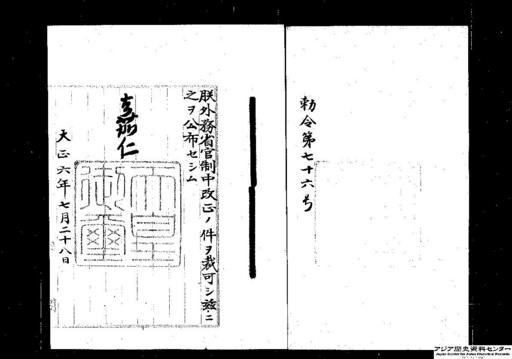 勅令第七十六号
朕外務省官制中改正ノ件ヲ裁可シ茲ニ
之ヲ公布セシム
嘉仁
天皇御璽
大正六年七月二十八日
アジア歴史資料センター
Japan Center for Asian Historical Records